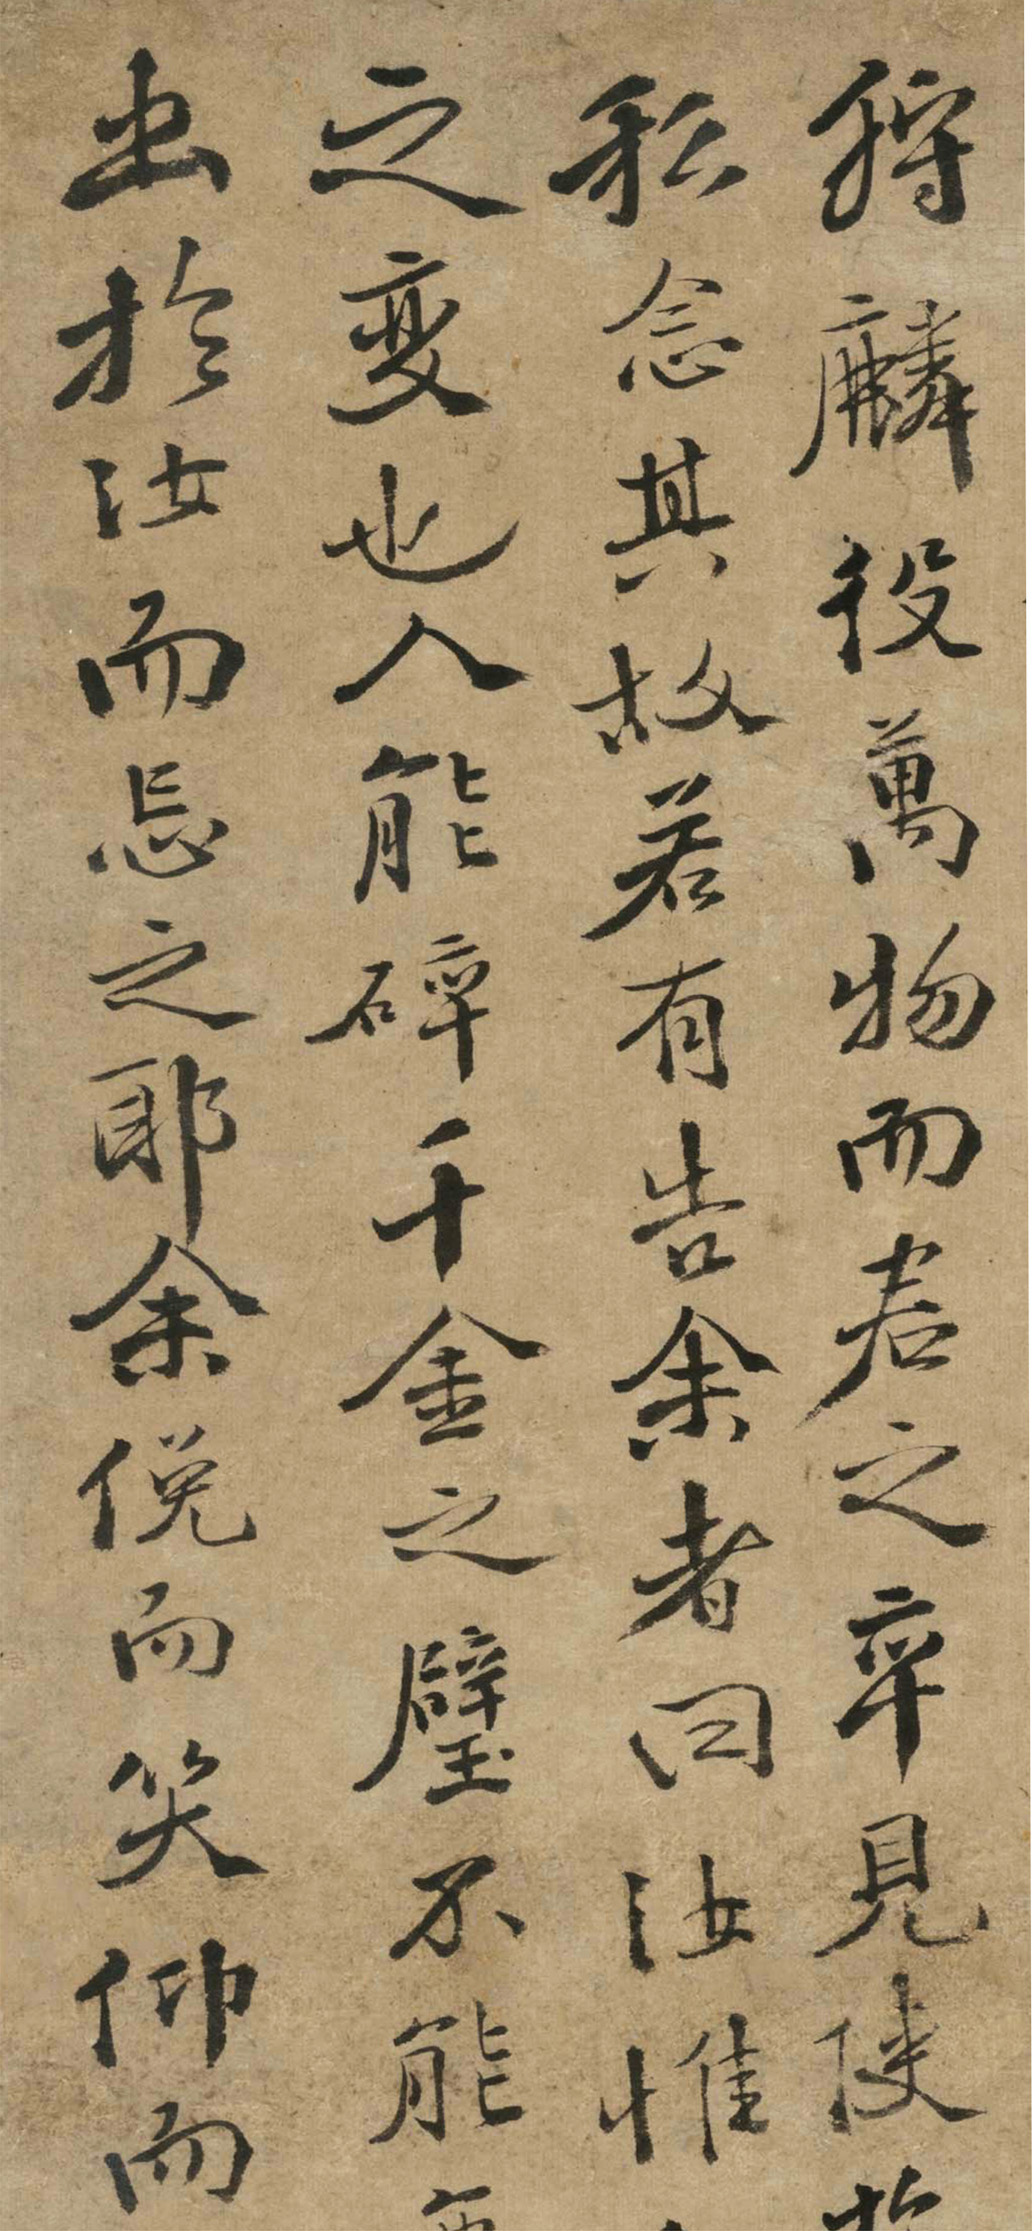 狩麟役萬物而君之卒見使
私念其故若有告余者曰汝惟
之変也人能碎千金之璧不能
出於汝而忘之耶余俛而笑仰而